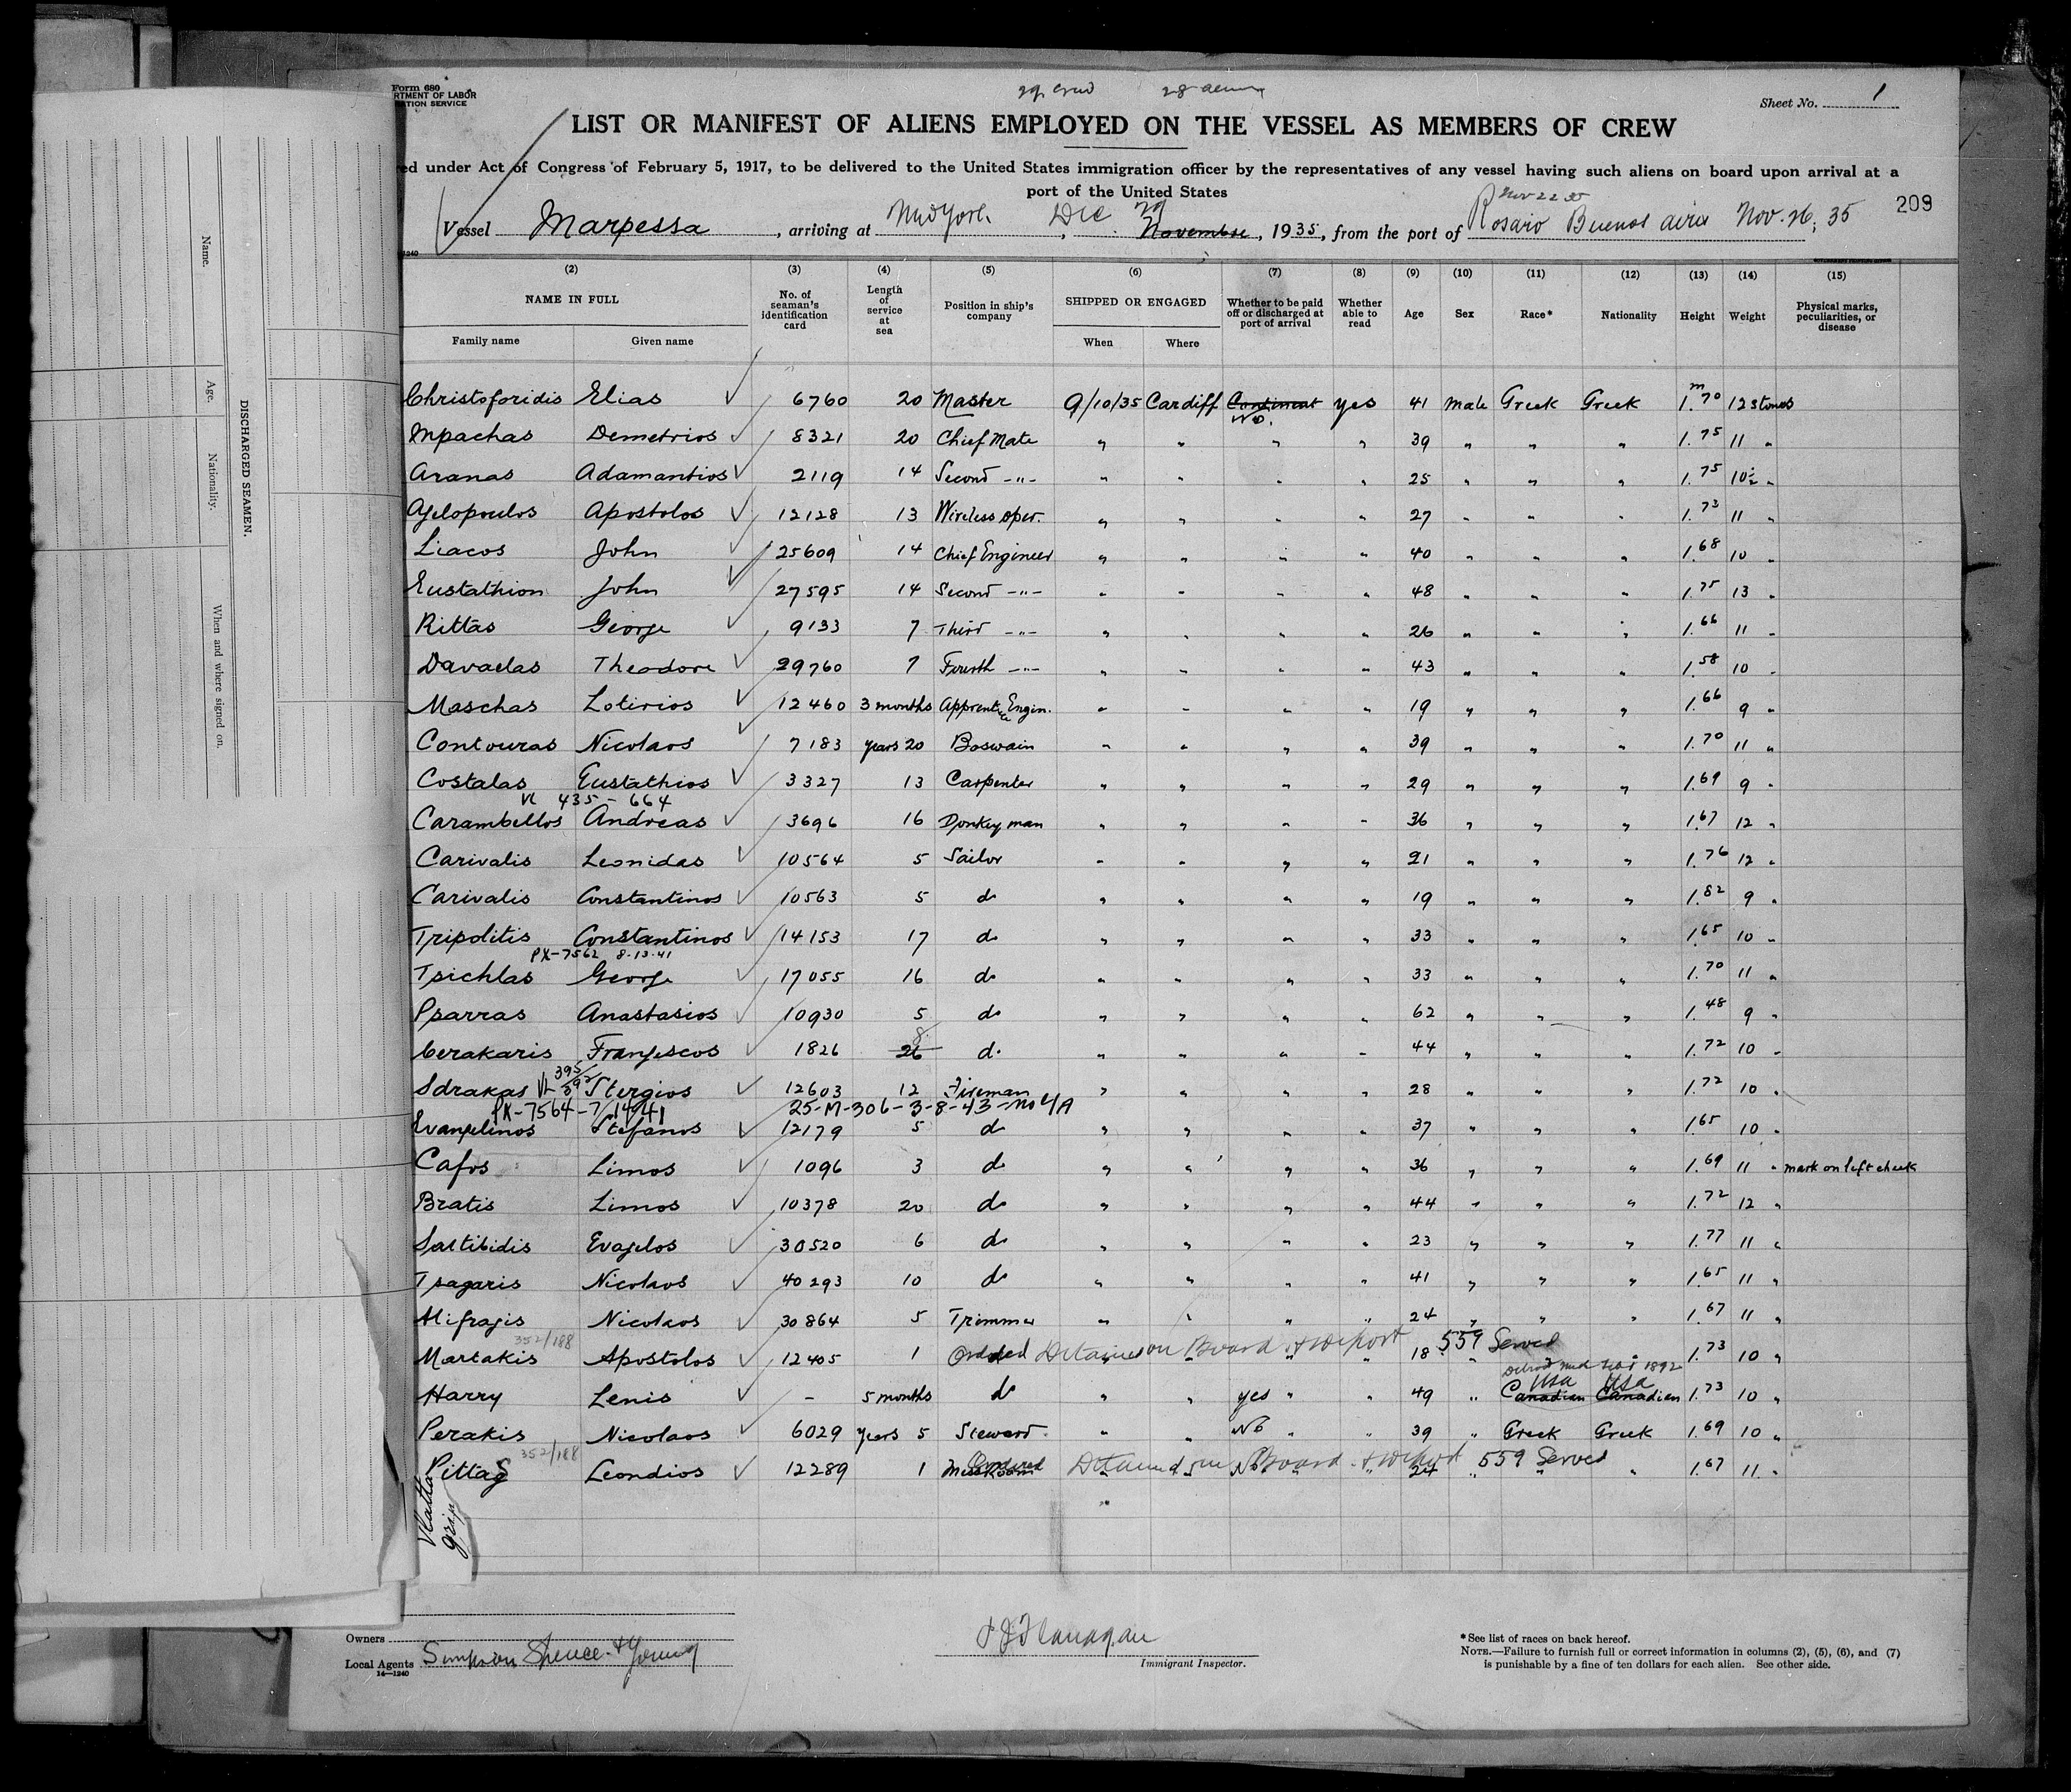 Form 680
RTMENT OF LABOR
ATION SERVICE
29 crew 28 aliens
Sheet No. 1
LIST OR MANIFEST OF ALIENS EMPLOYED ON THE VESSEL AS MEMBERS OF CREW
ed under Act of Congress of February 5, 1917, to be delivered to the United States immigration officer by the representatives of any vessel having such aliens on board upon arrival at a
port of the United States
Nov 22 35
Vessel Marpessa, arriving at New York, Dec 29 Novembre, 1935, from the port of Rosario Buenos aires Nov. 26, 35
209
(2) (3) (4) (5) (6) (7) (8) (9) (10) (11) (12) (13) (14) (15)
NAME IN FULL No. of seaman's identification card Length of service at sea Position in ship's company SHIPPED OR ENGAGED Whether to be paid off or discharged at port of arrival Whether able to read Age Sex Race* Nationality Height Weight Physical marks, peculiarities, or disease
Family name Given name When Where
Christoforidis Elias 6760 20 Master 9/10/35 Cardiff Continent No. yes 41 male Greek Greek 1.70 m 12 stones
Mpachas Demetrios 8321 20 Chief Mate " " " " 39 " " " 1.75 11 "
Aranas Adamantios 2119 14 Second -"- " " " " 25 " " " 1.75 10½ "
Agelopoulos Apostolos 12128 13 Wireless oper. " " " " 27 " " " 1.73 11 "
Liacos John 25609 14 Chief Engineer " " " " 40 " " " 1.68 10 "
Eustathion John 27595 14 Second -"- " " " " 48 " " " 1.75 13 "
Rittas George 9133 7 Third -"- " " " " 26 " " " 1.66 11 "
Davaelas Theodore 29760 7 Fourth -"- " " " " 43 " " " 1.58 10 "
Maschas Lotirios 12460 3 months Apprentice Engin. " " " " 19 " " " 1.66 9 "
Contouras Nicolaos 7183 years 20 Boswain " " " " 39 " " " 1.70 11 "
Costalas Eustathios 3327 13 Carpenter " " " " 29 " " " 1.69 9 "
VL 435-664
Carambellos Andreas 3696 16 Donkey man " " " " 36 " " " 1.67 12 "
Carivalis Leonidas 10564 5 Sailor " " " " 21 " " " 1.76 12 "
Carivalis Constantinos 10563 5 do " " " " 19 " " " 1.82 9 "
Tripolitis Constantinos 14153 17 do " " " " 33 " " " 1.65 10 "
PX-7562 8-13-41
Tsichlas George 17055 16 do " " " " 33 " " " 1.70 11 "
Psarras Anastasios 10930 5 do " " " " 62 " " " 1.48 9 "
Cerakaris Frangescos 1826 26 8 do " " " " 44 " " " 1.72 10 "
Sdrakas VL 395/392 Stergios 12603 12 Fireman " " " " 28 " " " 1.72 10 "
PX-7564-7/14/41 25-M-306-3-8-43-No4A
Evangelinos Stefanos 12179 5 do " " " " 37 " " " 1.65 10 "
Cafos Limos 1096 3 do " " " " 36 " " " 1.69 11 " mark on left cheek
Bratis Limos 10378 20 do " " " " 44 " " " 1.72 12 "
Saltibidis Evagelos 30520 6 do " " " " 23 " " " 1.77 11 "
Tsagaris Nicolaos 40293 10 do " " " " 41 " " " 1.65 11 "
Mifragis Nicolaos 30864 5 Trimmer " " " " 24 " " " 1.67 11 "
352/188
Martakis Apostolos 12405 1 Ordered Detained on Board & deport 18 559 Served 1.73 10 "
Detroit Mich 1892
USA USA
Harry Lenis - 5 months do " " yes " " 49 " Canadian Canadian 1.73 10 "
Perakis Nicolaos 6029 years 5 Steward " " No " " 39 " Greek Greek 1.69 10 "
352/188
Pittas Leondios 12289 1 Mess Room Ordered Detained on Board & deport No 24 559 Served 1.67 11 "
Owners
Local Agents Simpson Spence & Young
14—1240
Immigrant Inspector.
*See list of races on back hereof.
NOTE.—Failure to furnish full or correct information in columns (2), (5), (6), and (7)
is punishable by a fine of ten dollars for each alien. See other side.
DISCHARGED SEAMEN.
Name.
Age.
Nationality.
When and where signed on.